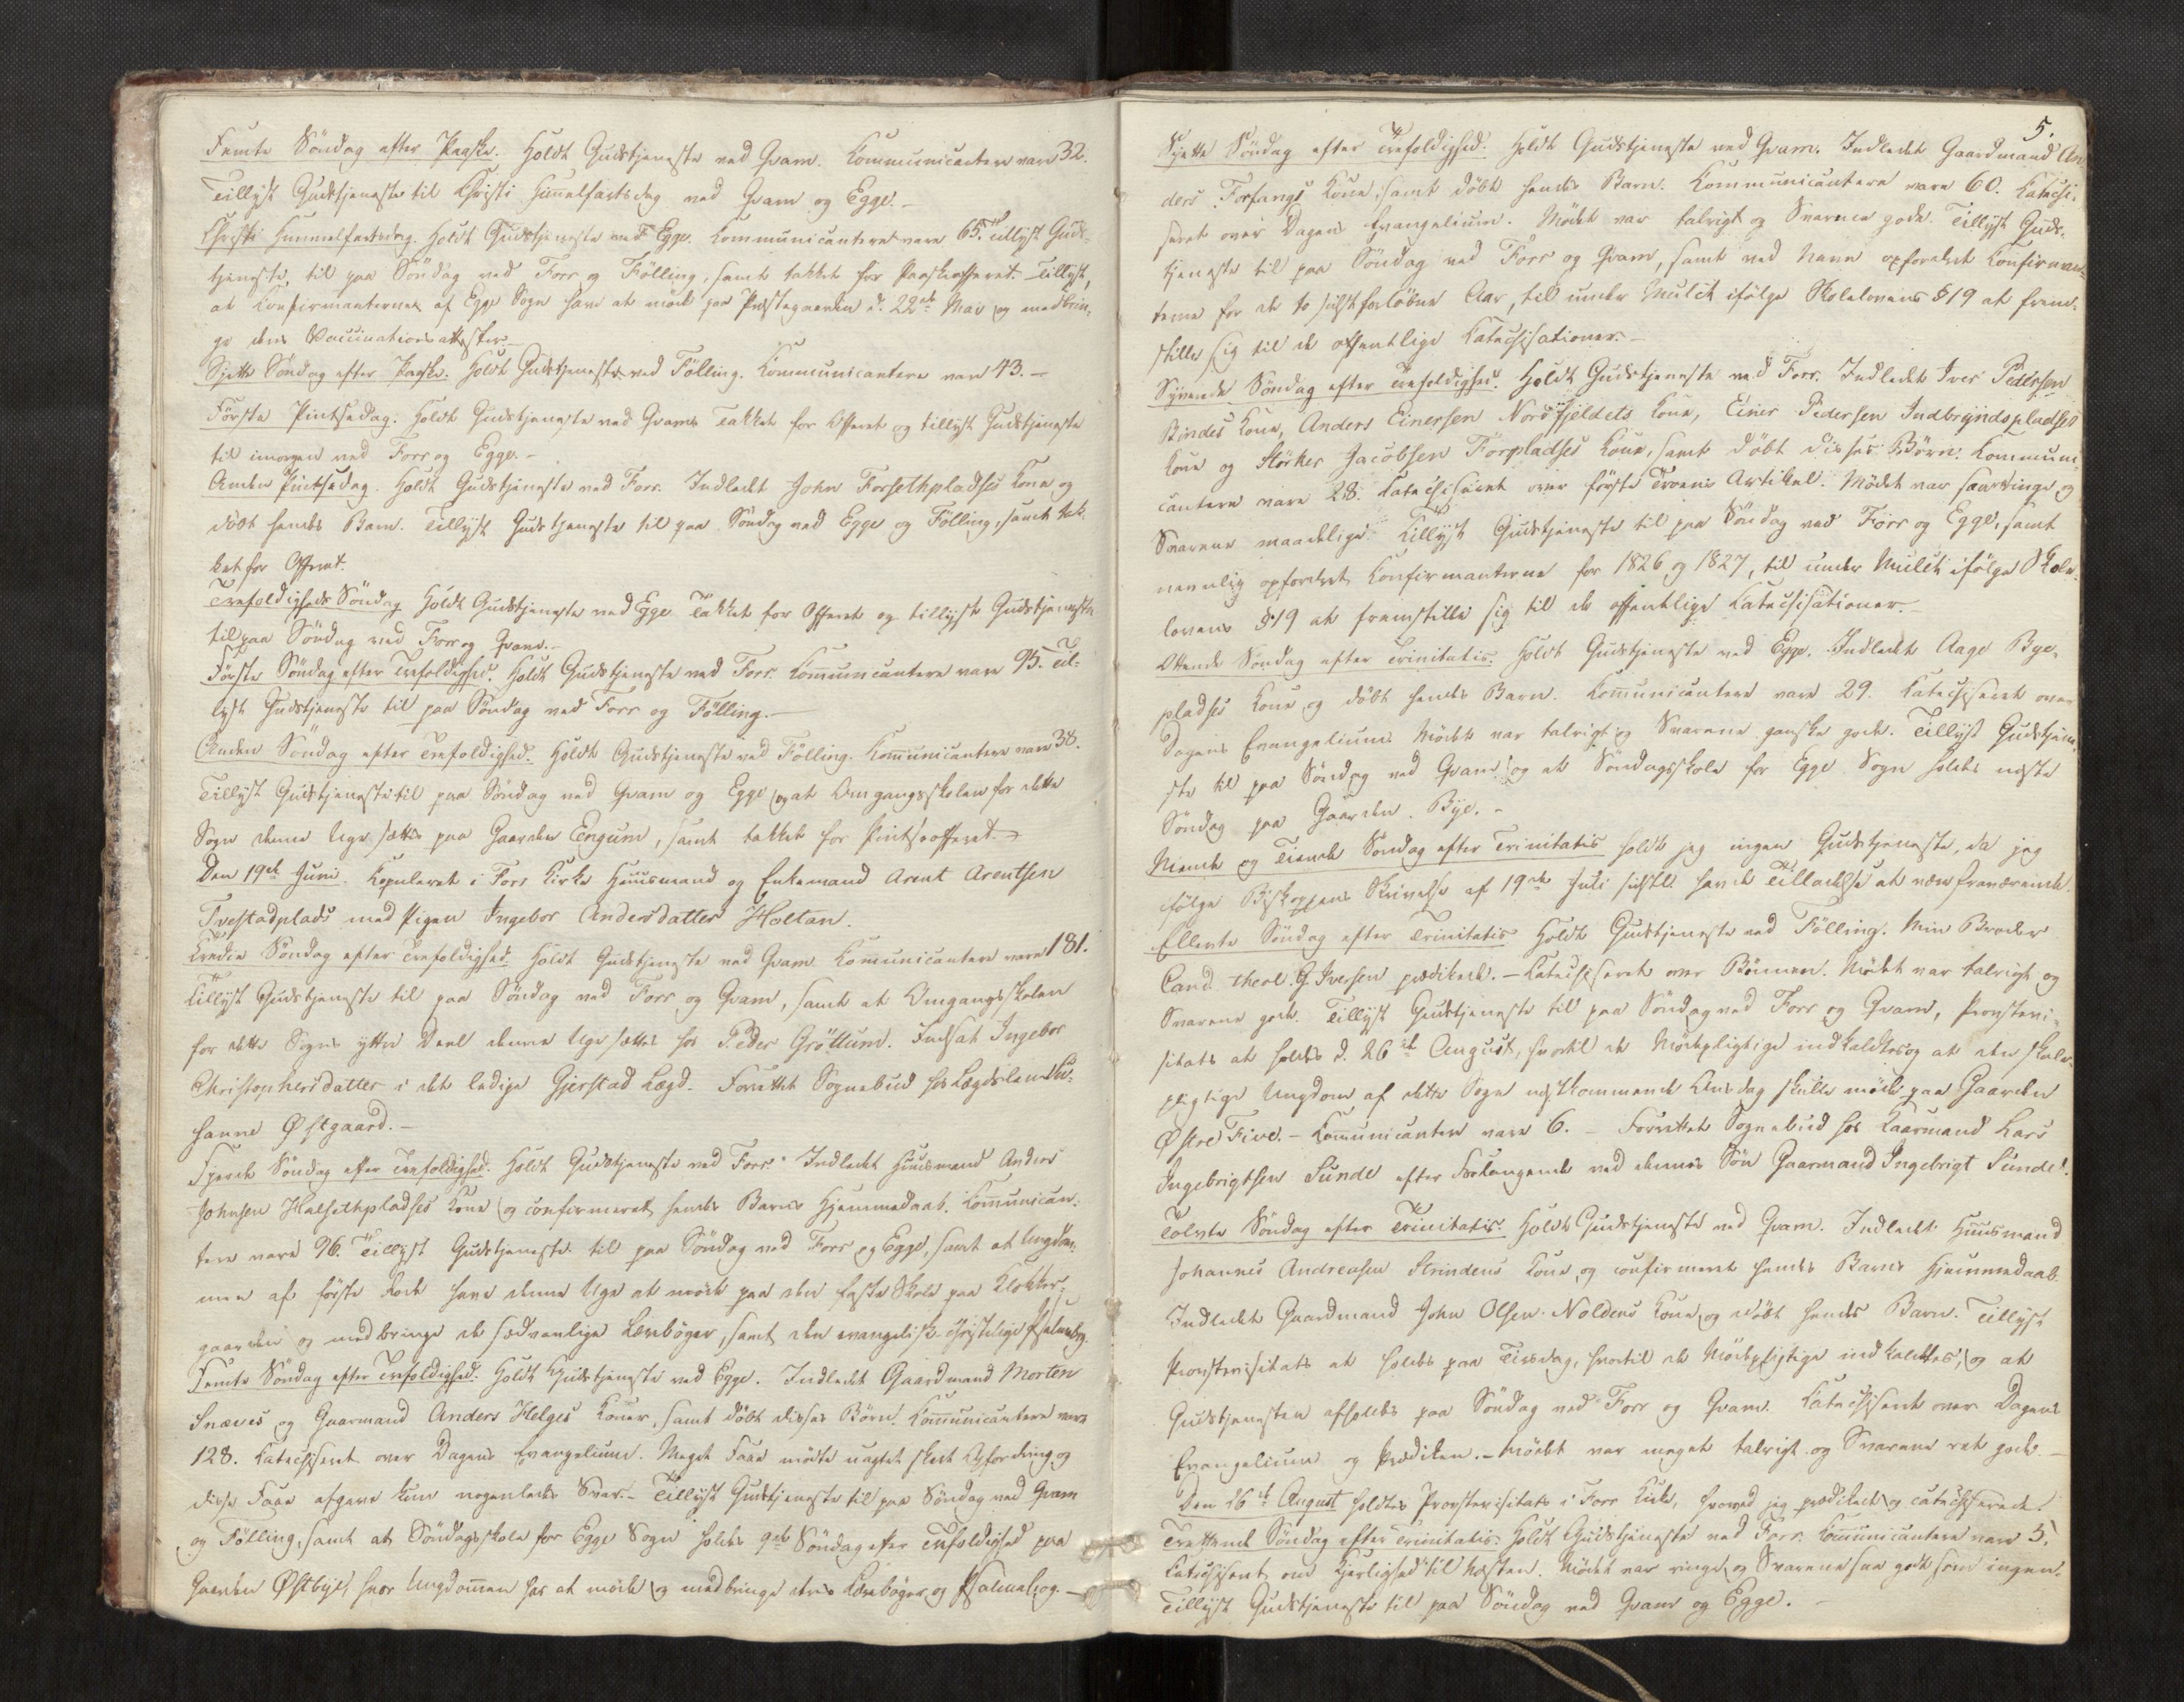 Femte Söndag efter Paaske. Holdt Gudstjeneste ved Qvam. Communicantere vare 32.
Tillyst Gudstjeneste til Christi Himmelfartsdag ved Qvam og Egge. -
Christi Himmelfartsdag. Holdt Gudstjeneste ved Egge. Communicantere vare 65. Tillyst Guds-
tjeneste til paa Söndag ved Forr og Fölling, samt takket for Paaskeofferet. Tillyst,
at Confirmanterne af Egge Sogn have at möde paa Præstegaarden d. 22de Mai og medbrin-
ge deres Vaccinationsattester.
Sjette Söndag efter Paaske. Holdt Gudstjeneste ved Fölling. Communicantere vare 43. -
Förste Pintsedag. Holdt Gudstjeneste ved Qvam. Takket for Offeret og tillyst Gudstjeneste
til imorgen ved Forr og Egge. -
Anden Pintsedag. Holdt Gudstjeneste ved Forr. Indledet John Forsethpladses Kone og
döbt hendes Barn. Tillyst Gudstjeneste til paa Söndag ved Egge og Fölling, samt tak-
ket for Offeret.
Trefoldigheds Söndag Holdt Gudstjeneste ved Egge Takket for Offeret og tillyst Gudstjeneste
til paa Söndag ved Forr og Qvam. -
Förste Söndag efter Trefoldighed. Holdt Gudstjeneste ved Forr. Communicantere vare 95. Til-
lyst Gudstjeneste til paa Söndag ved Forr og Fölling. -
Anden Söndag efter Trefoldighed. Holdt Gudstjeneste ved Fölling. Communicantere vare 38.
Tillyst Gudstjeneste til paa Söndag ved Qvam og Egge og at Omgangsskolen for dette
Sogn denne Uge sættes paa Gaarden Engum, samt takket for Pintseofferet. -
Den 19de Juni. Kopuleret i Forr Kirke Huusmand og Enkemand Arent Arentsen
Tvestadplads med Pigen Ingebor Andersdatter Holtan.
Tredie Söndag efter Trefoldighed. Holdt Gudstjeneste ved Qvam Communicantere vare 181.
Tillyst Gudstjeneste til paa Söndag ved Forr og Qvam, samt at Omgangsskolen
for dette Sogns yttre Deel denne Uge sættes hos Peder Gröttum. Indsat Ingebor
Christophersdatter i det ledige Gjerstad Lægd. Forrettet Sognebud hos Lægdslem Su-
hanne Østgaard. -
Fjerde Söndag efter Trefoldighed. Holdt Gudstjeneste ved Forr. Indledet Huusmand Anders
Johnsen Halsethpladses Kone og confirmeret hendes Barns Hjemmedaab. Communican-
tere vare 96. Tillyst Gudstjeneste til paa Söndag ved Forr og Egge, samt at Ungdom-
men af förste Rode have denne Uge at möde paa den faste Skole paa Klokker-
gaarden og medbringe de sædvanlige Læreböger, samt den evangelisk-christelige Psalmebog.
Femte Söndag efter Trefoldighed. Holdt Gudstjeneste ved Egge. Indledet Gaardmand Morten
Snæves og Gaarmand Anders Helges Koner, samt döbt disses Börn. Communicantere vare
128. Catechiseret over Dagens Evangelium. Meget Faae mödte uagtet skeet Opfordring og
disse Faae afgave kun nogenledes Svar. - Tillyst Gudstjeneste til paa Söndag ved Qvam
og Fölling, samt at Söndagsskole for Egge Sogn holdes 9de Söndag efter Trefoldighed paa
Gaarden Østbye, hvor Ungdommen har at möde og medbringe deres Læreböger og Psalmebog. -
5.
Sjette Söndag efter Trefoldighed. Holdt Gudstjeneste ved Qvam. Indledet Gaardmand An-
ders Forfangs Kone, samt döbt hendes Barn. Communicantere vare 60. Catechi-
seret over Dagens Evangelium. Mödet var talrigt og Svarene gode. Tillyst Guds-
tjeneste til paa Söndag ved Forr og Qvam, samt ved Navn opfordret Confirman-
terne for de to sidstforløbne Aar, til under Mulct ifölge Skolelovens § 19 at frem-
stille sig til de offentlige Catechisationer. -
Syvende Söndag efter Trefoldighed. Holdt Gudstjeneste ved Forr. Indledet Iver Pedersen
Bindes Kone, Anders Einersen Nordfjeldets Kone, Einer Pedersen Indbryndspladses
Kone og Störker Jacobsen Forpladses Kone, samt döbt disses Börn. Communi-
cantere vare 28. Catechiseret over förste Troens Artikel. Mödet var saa ringe og
Svarene maadelige. Tillyst Gudstjeneste til paa Söndag ved Forr og Egge, samt
navnlig opfordret Confirmanterne for 1826 og 1827, til under Mulct ifölge Skole-
lovens § 19 at fremstille sig til de offentlige Catechisationer. -
Ottende Söndag efter Trinitatis. Holdt Gudstjeneste ved Egge. Indledet Aage Bye-
pladses Kone og döbt hendes Barn. Communicantere vare 29. Catechiseret over
Dagens Evangelium. Mödet var talrigt og Svarene ganske gode. Tillyst Gudstjene-
ste til paa Söndag ved Qvam og at Söndagsskole for Egge Sogn holdes næste
Söndag paa Gaarden Bye. -
Niende og Tiende Söndag efter Trinitatis holdt jeg ingen Gudstjeneste, da jeg
ifölge Biskoppens Skrivelse af 19de Juli sidstl. havde Tilladelse at være fraværende.
Ellevte Söndag efter Trinitatis Holdt Gudstjeneste ved Fölling. Min Broder
Cand. theol. G. Iversen prædikede. - Catechiseret over Bönnen. Mödet var talrigt og
Svarene gode. Tillyst Gudstjeneste til paa Söndag ved Forr og Qvam, Provstevi-
sitats at holdes d. 26de August, hvortil de Mödepligtige indkaldtes og at den skole-
pligtige Ungdom af dette Sogn næstkommende Onsdag skulle möde paa Gaarden
Østre Five. - Communicantere vare 6. - Forrettet Sognebud hos Kaarmand Lars
Ingebrigtsen Sunde efter Forlangende ved dennes Sön Gaarmand Ingebrigt Sunde.
Tolvte Söndag efter Trinitatis. Holdt Gudstjeneste ved Qvam. Indledet Huusmand
Johannes Andreasen Strindens Kone, og confirmeret hendes Barns Hjemmedaab.
Indledet Gaardmand John Olsen Noldens Kone og döbt hendes Barn. Tillyst
Provstevisitats at holdes paa Tirsdag, hvortil de Mödepligtige indkaldtes, og at
Gudstjenesten afholdes paa Söndag ved Forr og Qvam. Catechiseret over Dagens
Evangelium og Prædiken. - Mödet var meget talrigt og Svarene ret gode. -
Den 26de August holdtes Provstevisitats i Forr Kirke, hvorved jeg prædikede og catechiserede.
Trettende Söndag efter Trinitatis. Holdt Gudstjeneste ved Forr. Communicantere vare 5.
Catechiseret om Kjerlighed til Næsten. Mödet var ringe og Svarene saa godt som ingen.
Tillyst Gudstjeneste til paa Söndag ved Qvam og Egge. -